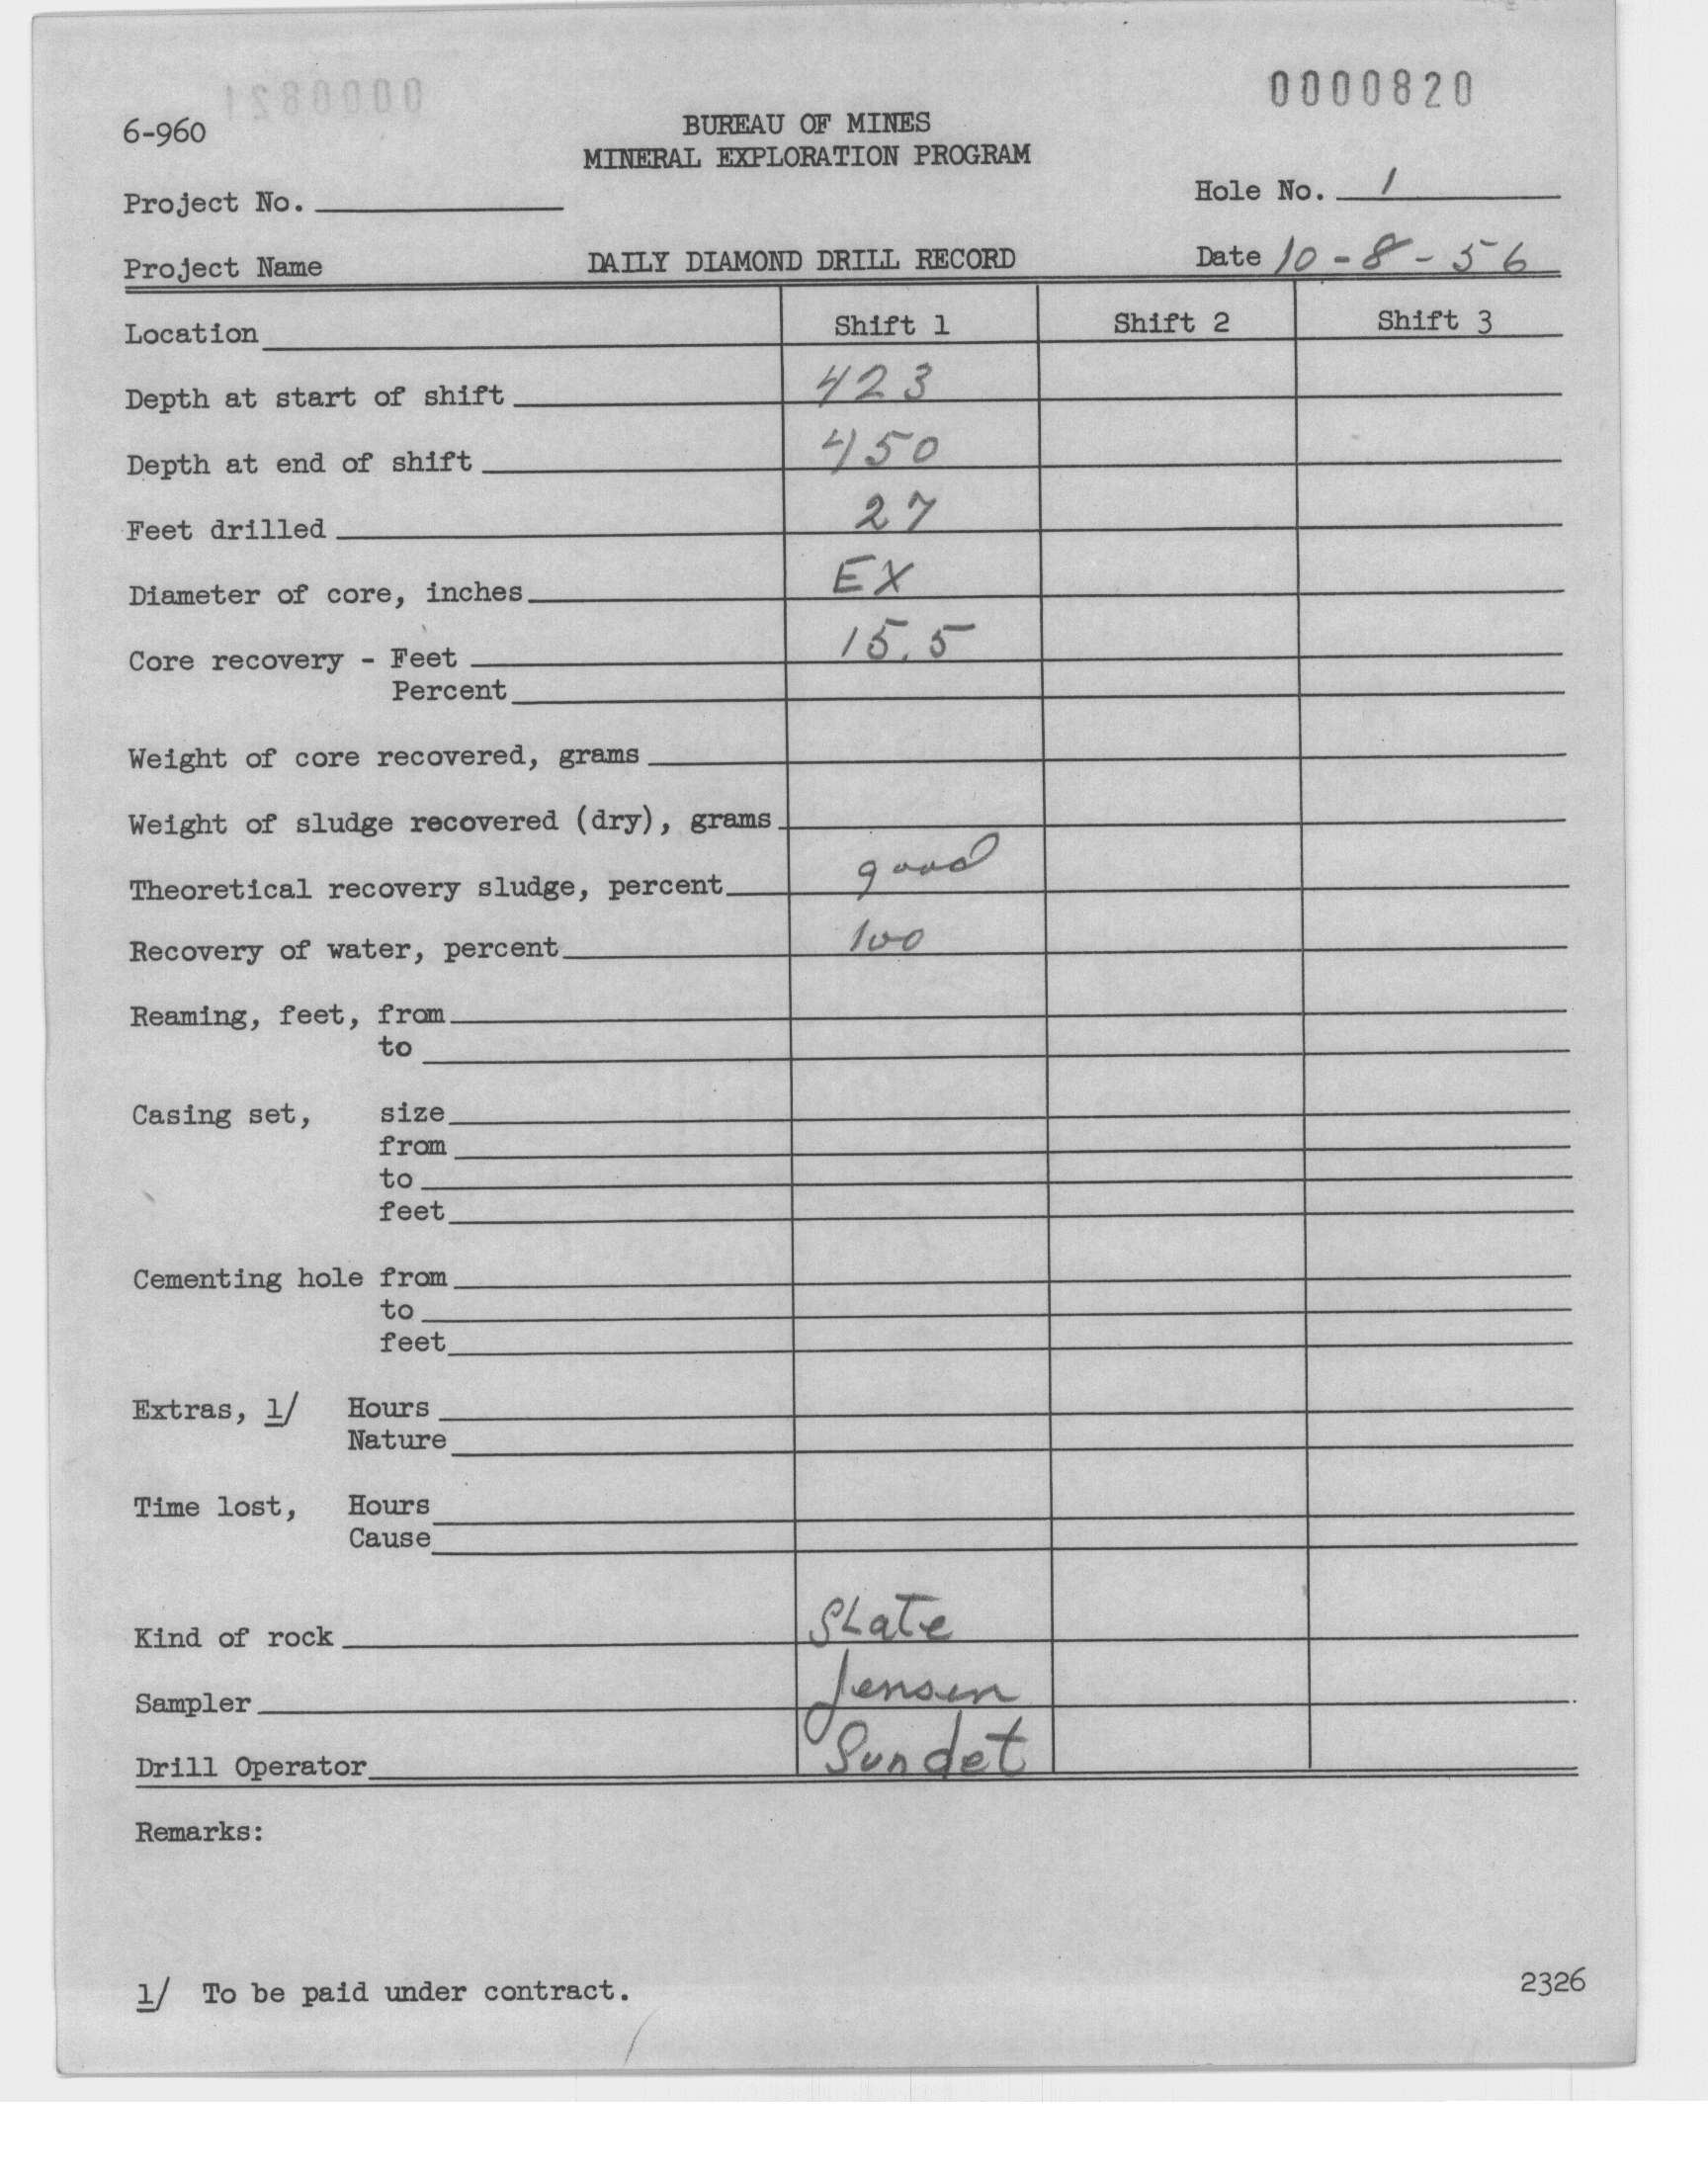 0000821
0000820
6-960
BUREAU OF MINES
MINERAL EXPLORATION PROGRAM
Project No.
Hole No. 1
Project Name
DAILY DIAMOND DRILL RECORD
Date 10-8-56
Location Shift 1 Shift 2 Shift 3
Depth at start of shift 423
Depth at end of shift 450
Feet drilled 27
Diameter of core, inches EX
Core recovery - Feet 15.5
Percent
Weight of core recovered, grams
Weight of sludge recovered (dry), grams
Theoretical recovery sludge, percent good
Recovery of water, percent 100
Reaming, feet, from
to
Casing set, size
from
to
feet
Cementing hole from
to
feet
Extras, 1/ Hours
Nature
Time lost, Hours
Cause
Kind of rock SLate
Sampler Jensen
Drill Operator Sundet
Remarks:
1/ To be paid under contract.
2326